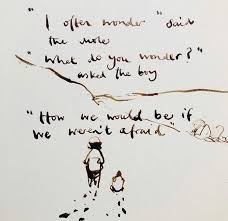 "I often wonder" said
the mole
"What do you wonder?"
asked the boy
"How we would be if
we weren't afraid